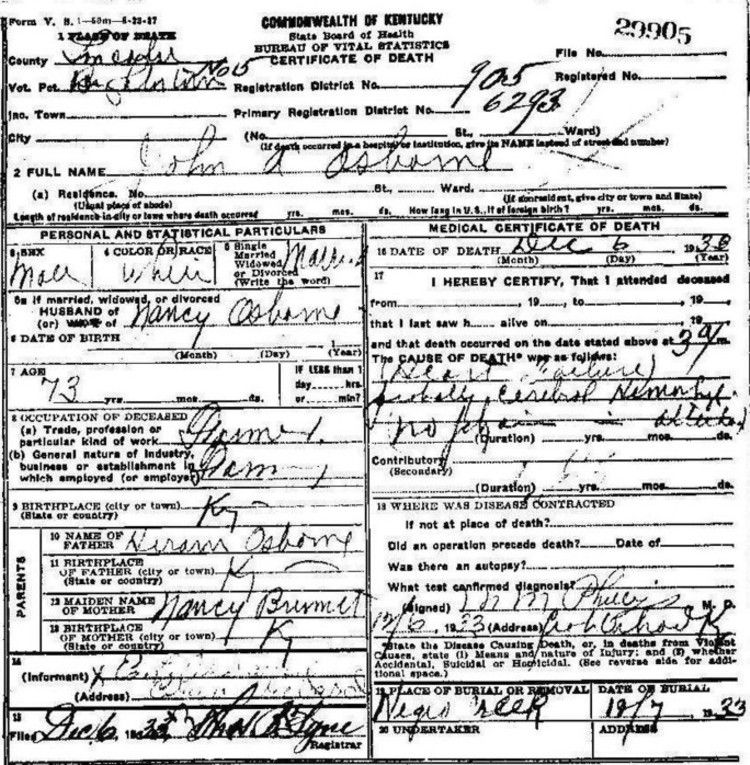 Form V. S. 1—50m—6-23-27
COMMONWEALTH OF KENTUCKY
State Board of Health
BUREAU OF VITAL STATISTICS
CERTIFICATE OF DEATH
29905
1 PLACE OF DEATH
County Lincoln
File No.
Vot. Pct. No 5 Registration District No. 905 Registered No.
Inc. Town Primary Registration District No. 6293
City (No. St., Ward)
(If death occurred in a hospital or institution, give its NAME instead of street and number)
2 FULL NAME John A Osborne
(a) Residence. No. St., Ward.
(Usual place of abode) (If nonresident, give city or town and State)
Length of residence in city or town where death occurred yrs. mos. ds. How long in U. S., if of foreign birth? yrs. mos. ds.
PERSONAL AND STATISTICAL PARTICULARS
3 SEX Male
4 COLOR OR RACE White
5 Single Married Widowed or Divorced (Write the word) Married
5a If married, widowed, or divorced
HUSBAND of
(or) WIFE of Nancy Osborne
6 DATE OF BIRTH
(Month) (Day) (Year)
7 AGE 73 yrs. mos. ds.
IF LESS than 1
day hrs.
or min?
8 OCCUPATION OF DECEASED
(a) Trade, profession or
particular kind of work Farmer
(b) General nature of industry,
business or establishment in
which employed (or employer) Farm
9 BIRTHPLACE (city or town) Ky
(State or country)
PARENTS
10 NAME OF FATHER Hiram Osborne
11 BIRTHPLACE OF FATHER (city or town) Ky
(State or country)
12 MAIDEN NAME OF MOTHER Nancy
13 BIRTHPLACE OF MOTHER (city or town) Ky
(State or country)
14
(Informant) X
(Address)
15
Filed Dec 6, 1933
Registrar
MEDICAL CERTIFICATE OF DEATH
16 DATE OF DEATH Dec 6 193
(Month) (Day) (Year)
17
I HEREBY CERTIFY, That I attended deceased
from , 19 , to , 19
that I last saw h alive on , 19
and that death occurred on the date stated above at 3 m.
The CAUSE OF DEATH* was as follows:
Heart Failure
probably Cerebral
no
(Duration) yrs. mos. ds.
Contributory
(Secondary)
(Duration) yrs. mos. ds.
18 WHERE WAS DISEASE CONTRACTED
if not at place of death?
Did an operation precede death? Date of
Was there an autopsy?
What test confirmed diagnosis?
(Signed) M. D.
12/6, 1933 (Address)
*State the Disease Causing Death, or, in deaths from Violent
Causes, state (1) Means and nature of Injury; and (2) whether
Accidental, Suicidal or Homicidal. (See reverse side for addi-
tional space.)
19 PLACE OF BURIAL OR REMOVAL
Negro Creek
DATE OF BURIAL
12/7 1933
20 UNDERTAKER
ADDRESS